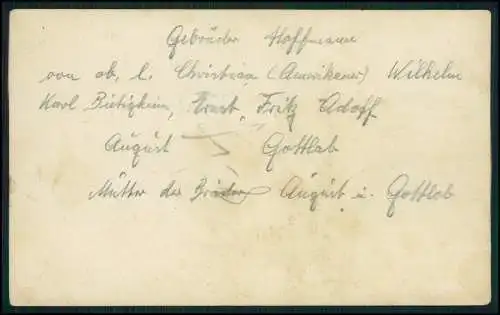 Gebrüder Hoffmann
von ob, l. Christian (Amerikaner) Wilhelm
Karl Bietigheim, Ernst, Fritz Adolf
August Gottlob
Mutter der Brüder August u. Gottlob